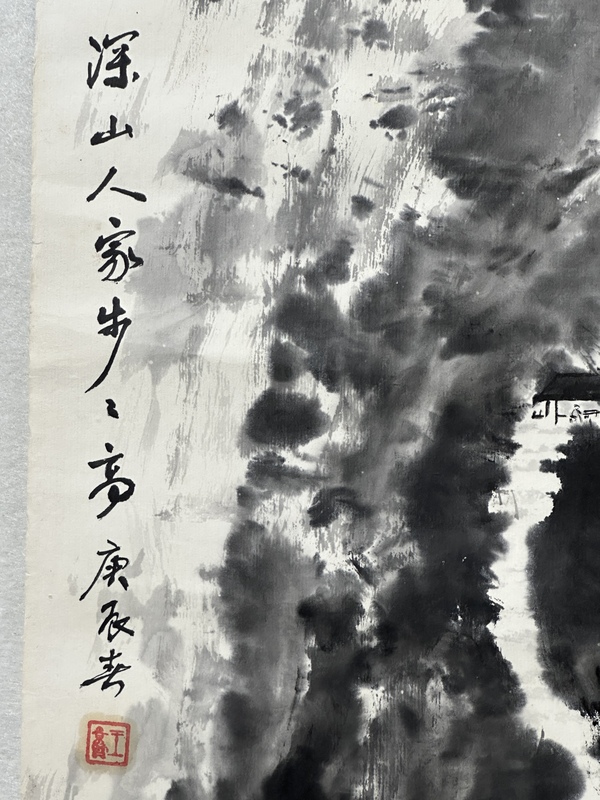 深山人家步〻高 庚辰春